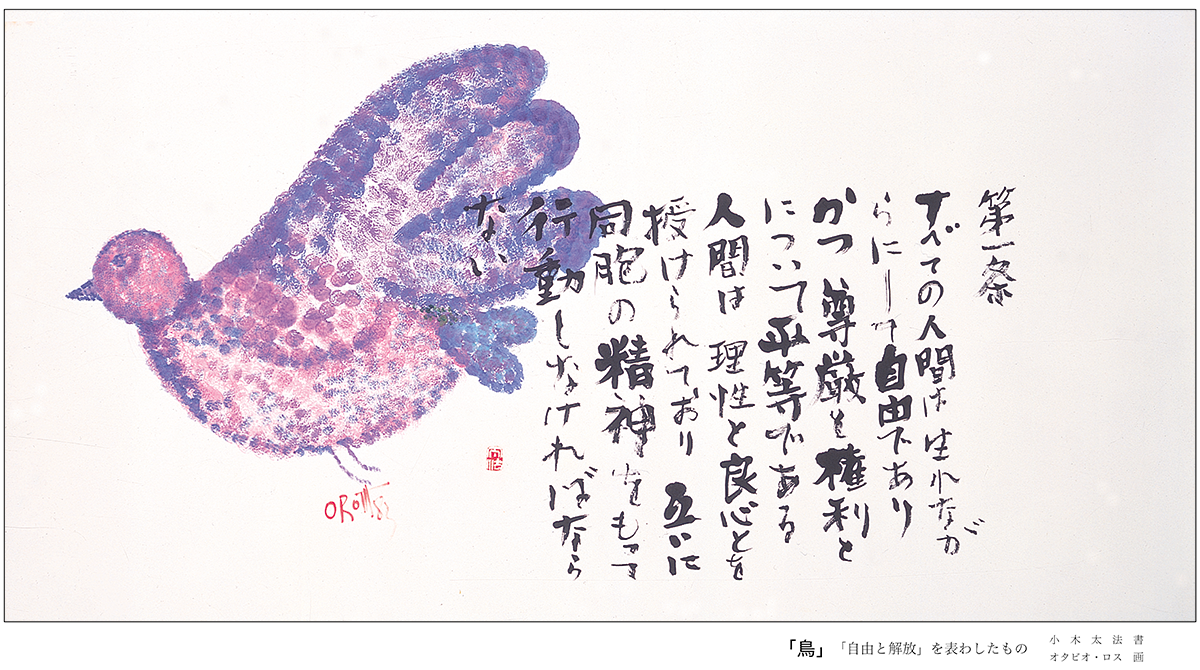 第一条
すべての人間は生れなが
らにして自由であり
かつ 尊厳と権利と
について平等である
人間は 理性と良心とを
授けられており 互いに
同胞の精神をもって
行動しなければなら
ない
OROS 83
「鳥」「自由と解放」を表わしたもの
小木太法 書
オタビオ・ロス 画